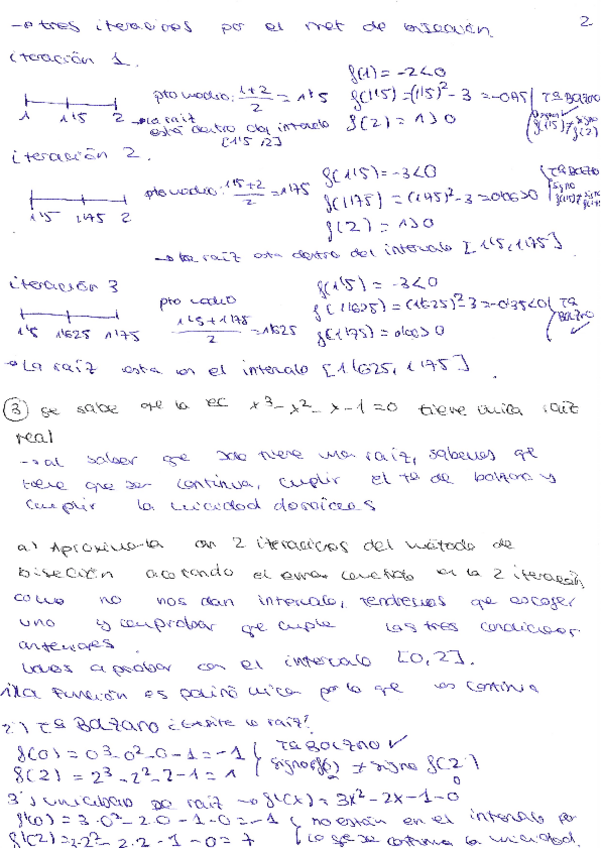 → tres iteraciones por el met de bisección. 2
iteración 1.
f(1) = -2<0
pto medio: (1+2)/2 = 1'5 f(1'5) = (1'5)²-3 = -0'75 Tª Bolzano
1 1'5 2 → La raíz está dentro del intervalo f(2) = 1>0 signo f(1'5) ≠ signo f(2)
[1'5, 2]
iteración 2.
f(1'5) = -3<0
pto medio: (1'5+2)/2 = 1'75 f(1'75) = (1'75)²-3 = 0'06>0
1'5 1'75 2 f(2) = 1>0
→ La raíz esta dentro del intervalo [1'5, 1'75]
iteración 3
f(1'5) = -3<0
pto medio f(1'625) = (1'625)²-3 = -0'35<0 Tª
1'5 1'625 1'75 (1'5+1'75)/2 = 1'625 f(1'75) = 0'06>0 Bolzano ✓
→ La raíz esta en el intervalo [1'625, 1'75]
③ Se sabe que la ec x³-x²-x-1=0 tiene única raíz
real
→ al saber que solo tiene una raíz, sabemos que
tiene que ser continua, cumplir el Tª de bolzano y
cumplir la unicidad
a) Aproximarla con 2 iteraciones del método de
bisección acotando el error cometido en la 2 iteración
como no nos dan intervalo, tendremos que escoger
uno y comprobar que cumple las tres condiciones
anteriores.
Vamos a probar con el intervalo [0,2].
1) La función es polinómica por lo que es continua
2) Tª Bolzano ¿existe la raíz?
f(0) = 0³-0²-0-1 = -1 Tª Bolzano ✓
f(2) = 2³-2²-2-1 = 1 signo f(0) ≠ signo f(2)
3) unicidad de raíz → f'(x) = 3x²-2x-1=0
f'(0) = 3·0²-2·0-1-0 = -1 no están en el intervalo por
f'(2) = 3·2²-2·2-1-0 = 7 lo que se confirma la unicidad.